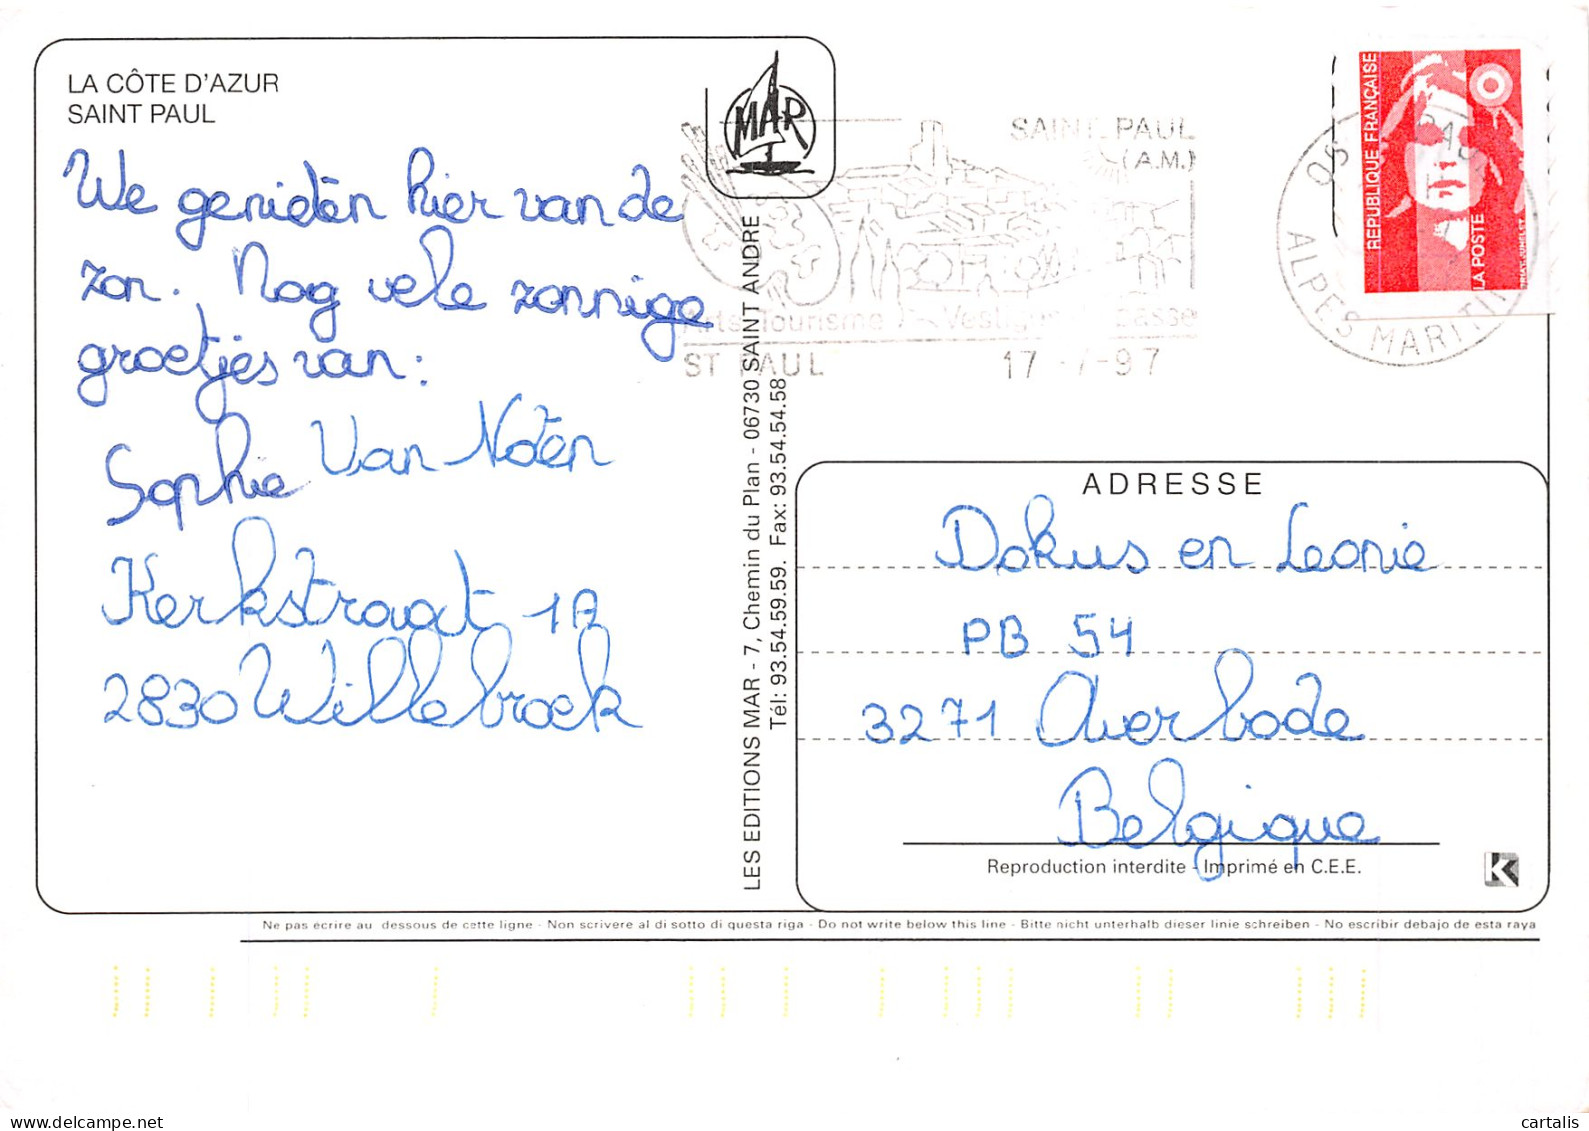 LA CÔTE D'AZUR
SAINT PAUL
We genieten hier van de
zon. Nog vele zonnige
groetjes van:
Sophie Van Noten
Kerkstraat 1A
2830 Willebroek
MAR
SAINT PAUL
(A.M.)
Arts Tourisme
ST PAUL 17-7-97
06
ALPES MARITI
REPUBLIQUE FRANÇAISE
LA POSTE
LES EDITIONS MAR - 7, Chemin du Plan - 06730 SAINT ANDRE
Tél: 93.54.59.59. Fax: 93.54.54.58
ADRESSE
Dokus en Leonie
PB 54
3271 Averbode
Belgique
Reproduction interdite - Imprimé en C.E.E.
K
Ne pas écrire au dessous de cette ligne - Non scrivere al di sotto di questa riga - Do not write below this line - Bitte nicht unterhalb dieser linie schreiben - No escribir debajo de esta raya
cartalis